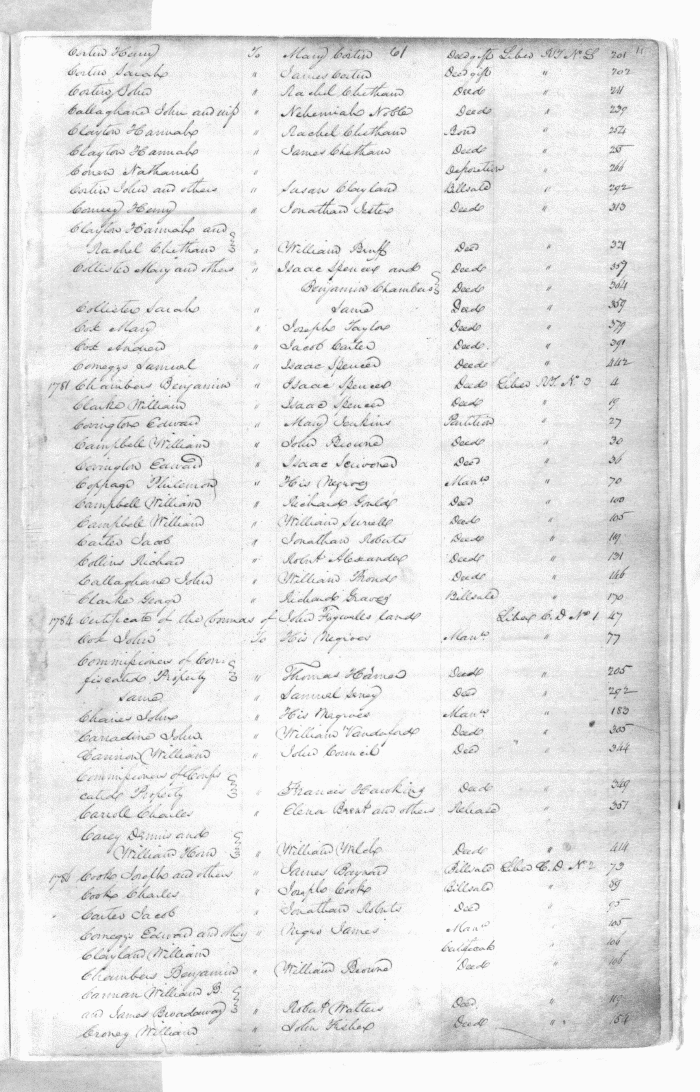 Cortin Henry To Mary Cortin 61 Deed gift Liber RT No L 201
Cortin Sarah " James Cortin Deed gift " 202
Cortin John " Rachel Chetham Deed " 211
Callaghane John and wife " Nehemiah Noble Deeds " 239
Clayton Hannah " Rachel Chetham Bond " 254
Clayton Hannah " James Chetham Deeds " 255
Nathaniel " Deposition " 266
Cortin John and others " Susan Clayland Billsale " 292
Henry " Jonathan Deeds " 313
Clayton Hannah and
Rachel Chetham " William Bruff Deed " 321
Collister Mary and others " Isaac Spencer and Deeds " 357
Benjamin Chambers Deeds " 364
Collister Sarah " Same Deed " 369
Cox Mary " Joseph Taylor Deeds " 379
Cox Andrew " Jacob Carter Deeds " 391
Comegys Samuel " Isaac Spencer Deeds " 442
1781 Chambers Benjamin " Isaac Spencer Deeds Liber RT No 3 4
Clarke William " Isaac Spencer Deeds " 19
Covington Edward " Mary Jenkins Partition " 27
Campbell William " John Browne Deeds " 30
Covington Edward " Isaac Deed " 36
Coppage Philemon " His Negroes Manu " 70
Campbell William " Richard Gould Deed " 100
Campbell William " William Deeds " 105
Carter Jacob " Jonathan Roberts Deeds " 119
Collins Richard " Robert Alexander Deeds " 131
Callaghane John " William Thomas Deeds " 146
Clarke George " Richard Graves Billsale " 170
1784 Certificate of the of John lands Liber C.D No 1 47
Cox John To His Negroes Manu " 77
Commissioners of Con
fiscated Property " Thomas Deeds " 205
Same " Samuel Deed " 292
Chaires John " His Negroes Manu " 183
Carradine John " William Vandeford Deeds " 305
Cannon William " John Council Deed " 344
Commissioners of Confis
cated Property " Francis Hawkins Deed " 349
Carroll Charles " Elenor Brent and others Release " 351
Carey Dennis and
William Horn " William Wilds Deeds " 414
1786 Cook and others " James Bayard Billsale Liber C.D No 2 73
Cook Charles " Joseph Cook Billsale " 89
Carter Jacob " Jonathan Roberts Deed " 95
Comegys Edward and others " Negro James Manu " 105
Clayland William Certificate " 106
Chambers Benjamin " William Browne Deeds " 108
Carman William B.
and James Broadaway " Robert Walters Deed "
Croney William " John Fisher Deeds " 154